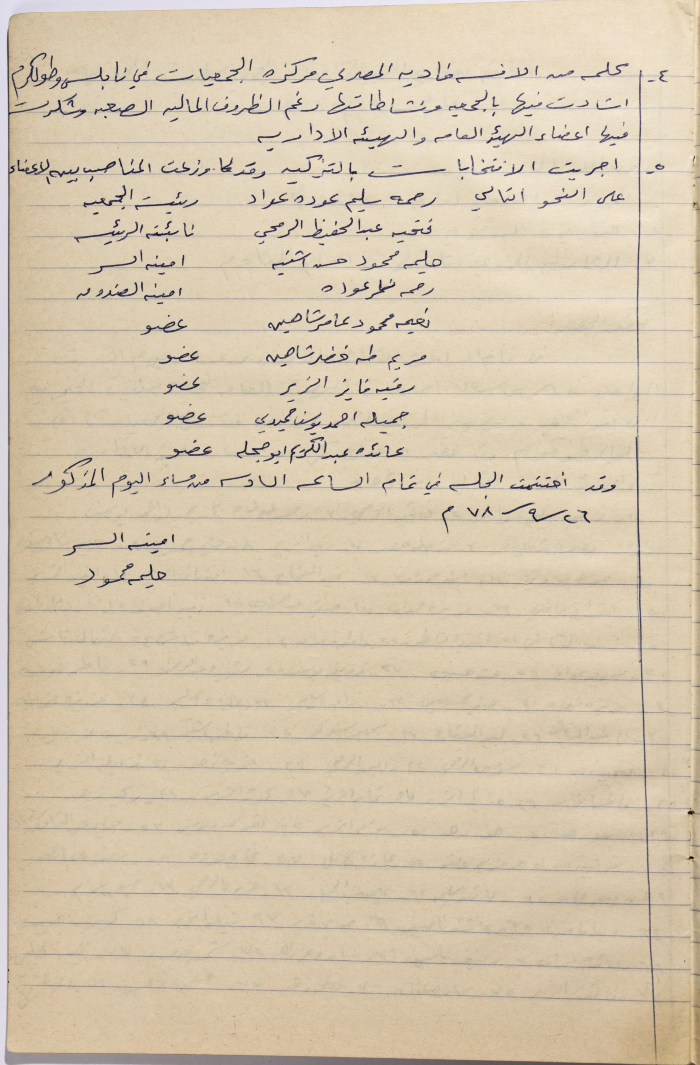 ٤- كلمه من الانسه فاديه المصري مركزة الجمعيات في نابلس وطولكرم
اشادت فيها بالجمعيه ونشاطاتها رغم الظروف الماليه الصعبه وشكرت
فيها اعضاء الهيئه العامه والهيئه الاداريه
٥- اجريت الانتخابات بالتزكيه وقد وزعت المناصب بين الاعضاء
على النحو التالي رحمه سليم عوده عواد رئيسة الجمعيه
فتحيه عبدالحفيظ الرمحي نائبة الرئيسه
حليمه محمود حسن اشنيه امينه السر
رحمه عواده امينه الصندوق
نعيمه محمود عامر شاهين عضو
مريم طه خضر شاهين عضو
رقيه فايز الزير عضو
جميله احمد يوسف حميدي عضو
عائده عبدالكريم ابو حجله عضو
وقد اختتمت الجلسه في تمام الساعه السادسه من مساء اليوم المذكور
٢٦/٩/٧٨ م
امينه السر
حليمه محمود